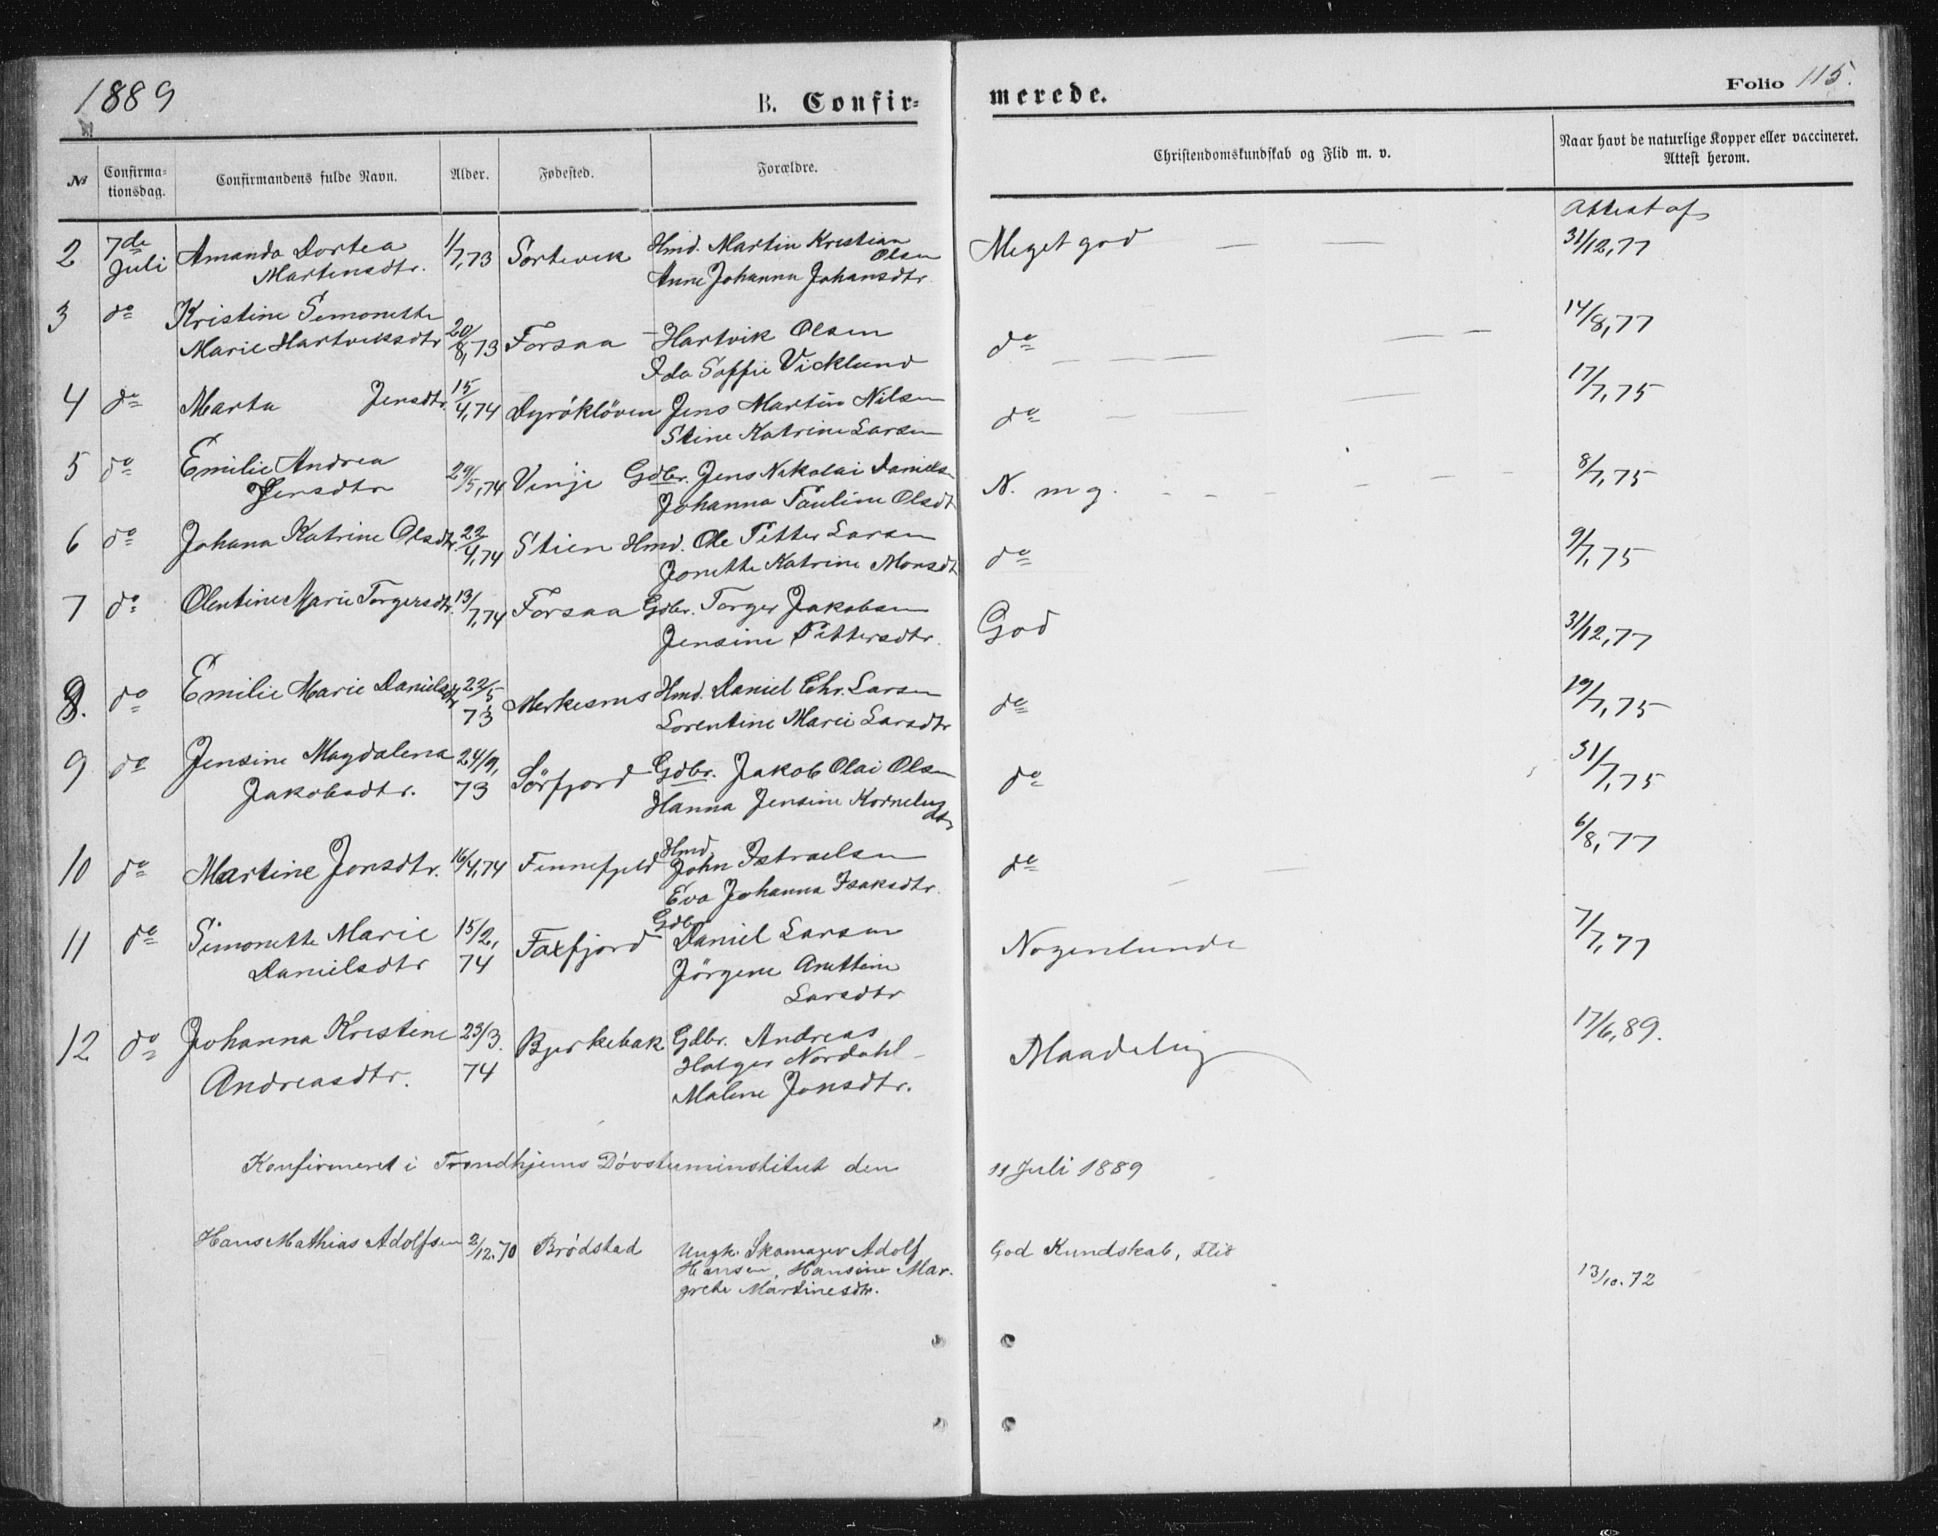 1889
B. Confir-
merede.
Folio 115.
№
Confirma-
tionsdag.
Confirmandens fulde Navn.
Alder.
Fødested.
Forældre.
Christendomskundskab og Flid m. v.
Naar havt de naturlige Kopper eller vaccineret.
Attest herom.
Attest af
2 7de Juli Amanda Dortea 1/7,73 Sortevik Hmd. Martin Kristian Meget god — — 31/12,77
Martinsdtr. Olsen
Anne Johanna Johansdtr.
3 do Kristine Simonette
Marie Hartviksdtr 20/8,73 Forsaa — Hartvik Olsen do — — — — — 14/8,77
Ida Soffie Vicklund
4 do Marta Jensdtr. 15/4,74 Dyröklöven Jens Martin Nilsen do — — 17/7,75
Stine Katrine Larsen
5 do Emilie Andrea
Jensdtr 29/5,74 Vinje Gdbr. Jens Nikolai Daniels. N. m g. - - - - - - 8/7,75
Johanna Pauline Olsdt
6 do Johana Katrine Olsdtr. 22/4,74 Stien Hmd. Ole Petter Larsen do 9/7,75
Jonette Katrine Monsdt.
7 do Olentine Marie Torgersdtr. 13/7,74 Forsaa Gdbr. Torger Jakobsen God 31/12,77
Jensine Pettersdtr.
8. do Emilie Marie Danielsdtr 22/5 73 Merkesnes Hmd. Daniel Chr. Larsen do 19/7,75
Lorentine Marie Larsdtr
9 do Jensine Magdalena 24/9, Sörfjord Gdbr. Jakob Olai Olsen do 31/7,75
Jakobsdtr. 73 Hanna Jensine Kornelius
dtr
10 do Martine Jonsdtr. 16/4,74 Finnefjeld Hmd.
John Istraelsen do — — 6/8,77
Eva Johanna Isaksdtr.
11 do Simonette Marie 15/2, Faxfjord Gdbr
Danielsdtr 74 Daniel Larsen Nogenlunde 7/7,77
Jörgene Anettine
Larsdtr
12 do Johanna Kristine 23/3. Bjerkebak Gdbr. Andreas Maadelig 17/6,89.
Andreasdtr. 74 Holger Nordahl —
Malene Jonsdtr.
Konfirmeret i Trondhjems Dövstuminstitut den 11 Juli 1889
Hans Mathias Adolfsen 2/12.70 Brödstad Ungk. Skomager Adolf God Kundskab, Flid
Hansen, Hansine Mar- 13/10.72
grete Martinesdtr.